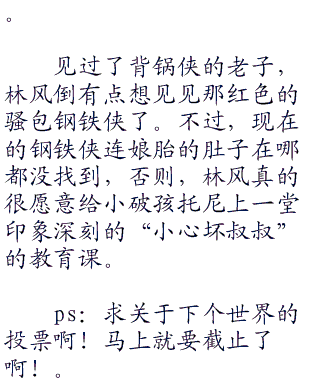 。
见过了背锅侠的老子，
林风倒有点想见见那红色的
骚包钢铁侠了。不过，现在
的钢铁侠连娘胎的肚子在哪
都没找到，否则，林风真的
很愿意给小破孩托尼上一堂
印象深刻的“小心坏叔叔”
的教育课。
ps：求关于下个世界的
投票啊！马上就要截止了
啊！。